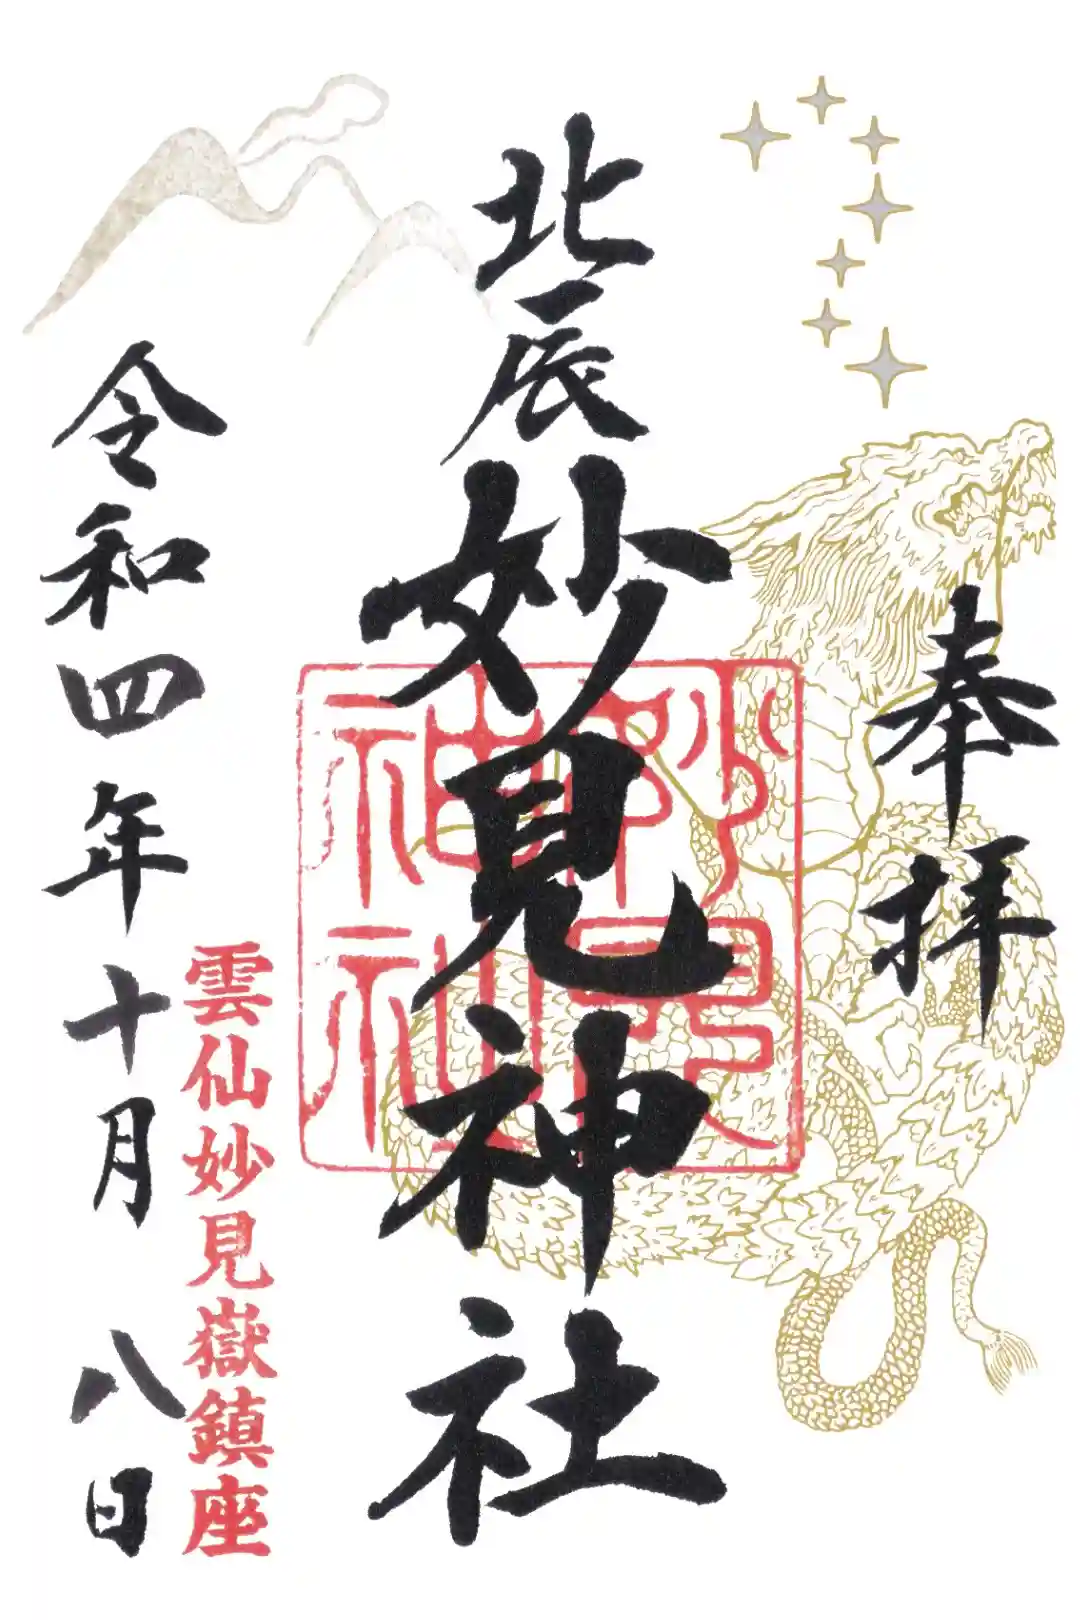 奉拝
北辰妙見神社
妙見
神社
雲仙妙見嶽鎮座
令和四年十月八日